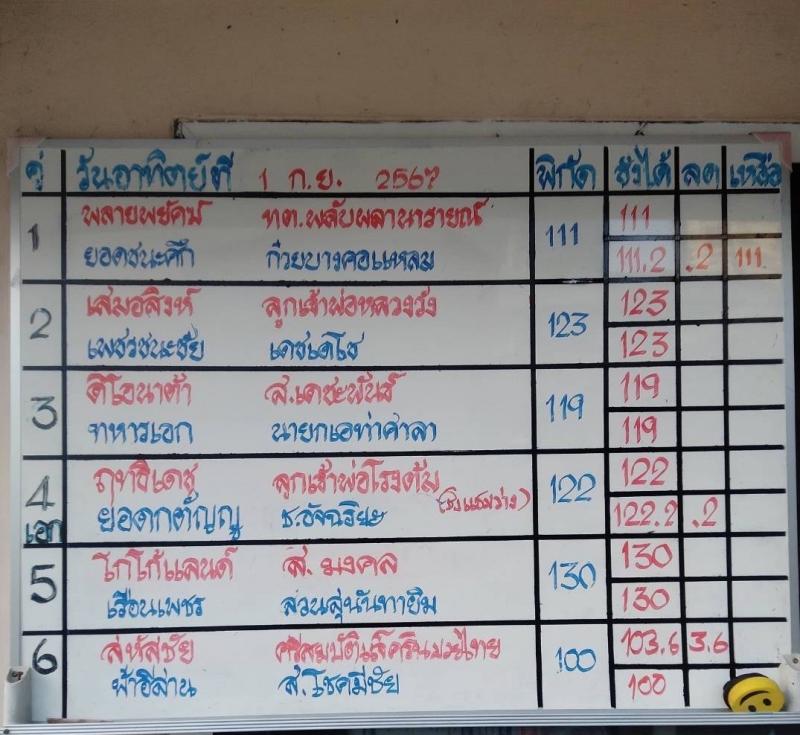 คู่ วันอาทิตย์ที่ 1 ก.ย. 2567 พิกัด ชั่งได้ ลด เหลือ
1 พลายพยัคฆ์ ทต.พลับพลานารายณ์ 111 111
ยอดชนะศึก ก๋วยบางคอแหลม 111.2 .2 111
2 เสมอสิงห์ ลูกเจ้าพ่อหลวงรัง 123 123
เพชรชนะชัย เดชเดโช 123
3 ดีโอนาต้า ส.เดชะพันธ์ 119 119
ทหารเอก นายกเอท่าศาลา 119
4 ฤทธิเดช ลูกเจ้าพ่อโรงต้ม 122 122
เอก ยอดกตัญญู ช.อัจฉริยะ 122.2 .2
5 โกโก้แลนด์ ส.มงคล 130 130
เรือนเพชร สวนสุนันทายิม 130
6 สหัสชัย ศรีสมบัติ 100 103.6 3.6
ฟ้าอีสาน ส.โชคมีชัย 100